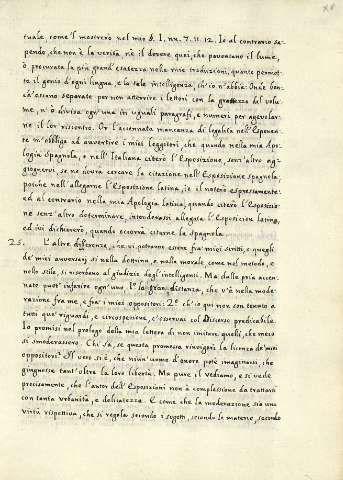 tuale come l'mostrerò nel mio §. I. nu. 7. 11. 12. Io al contrario sa-
pendo, che non è la verità nè il dovere quei, che paventano il lume,
ò procurata la più grand'esatezza nelle mie traduzioni, quante permet-
te il genio d'ogni lingua, e la sola intelligenza, ch'io n'abbia. Onde ben-
ch'escano separate per non atterrire i lettori con la grossezza del volu-
me, n'ò divisa ogn'una in uguali paragrafi, e numeri per agevolar-
ne il lor riscontro. Or l'accennata mancanza di legalità nell'Esponen-
te m'obbliga ad avvertire i miei leggitori, che quando nella mia Apo-
logia spagnola, e nell'Italiana citerò l'Esposizione, senz'altro ag-
giognervi, se ne dovrà cercare la citazione nell'Esposizione spagnola;
poichè nell'allegarne l'Esposizione latina, io il noterò espressamente:
ed al contrario nella mia Apologia latina, quando citerò l'Esposizio-
ne senz'altro determinare, intenderassi allegata l'Esposizion latina,
ed ivi dichiarerò, quando occorra citarne la spagnola.
25. L'altre differenze, che vi potranno essere frà miei scritti, e quegli
de' miei avversarj sì nella dottrina, e nella morale, come nel metodo, e
nello stile, si riserbano al giudizio degl'intelligenti. Ma dalla già accen-
nate puot' inferire ogn'uno. 1º la gran distanza, che v'è nella mode-
razione frà me, e frà i miei oppositori: 2º ch'io quì non son tenuto a
tutti que' riguardi, e circospezioni, ch'osservai col Discorso predicabile.
Io promisi nel prologo della mia lettera di non imitare quelli, che meco
si smoderassero. Chi sà, se questa promessa rinvigorì la licenza de' miei
oppositori? Il vero si è, che niun' uomo d'onore potè imaginarsi, che
giugnesse tant'oltre la loro libertà. Ma pure il vediamo, e si vede
precisamente, che l'autor dell'Esposizioni non à complessione da trattarsi
con tanta urbanità, e delicatezza. E come che la moderazione sia una
virtù rispettiva, che si regola secondo i sogetti, secondo le materie, secondo